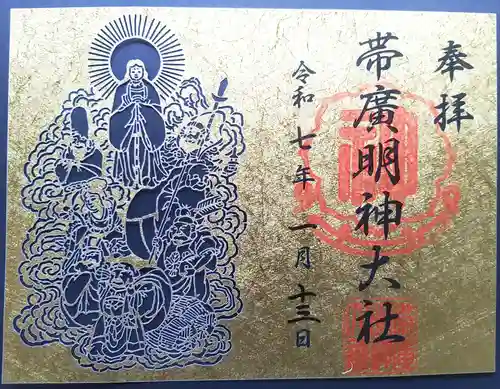 奉拝
帯廣明神大社
令和七年一月十三日